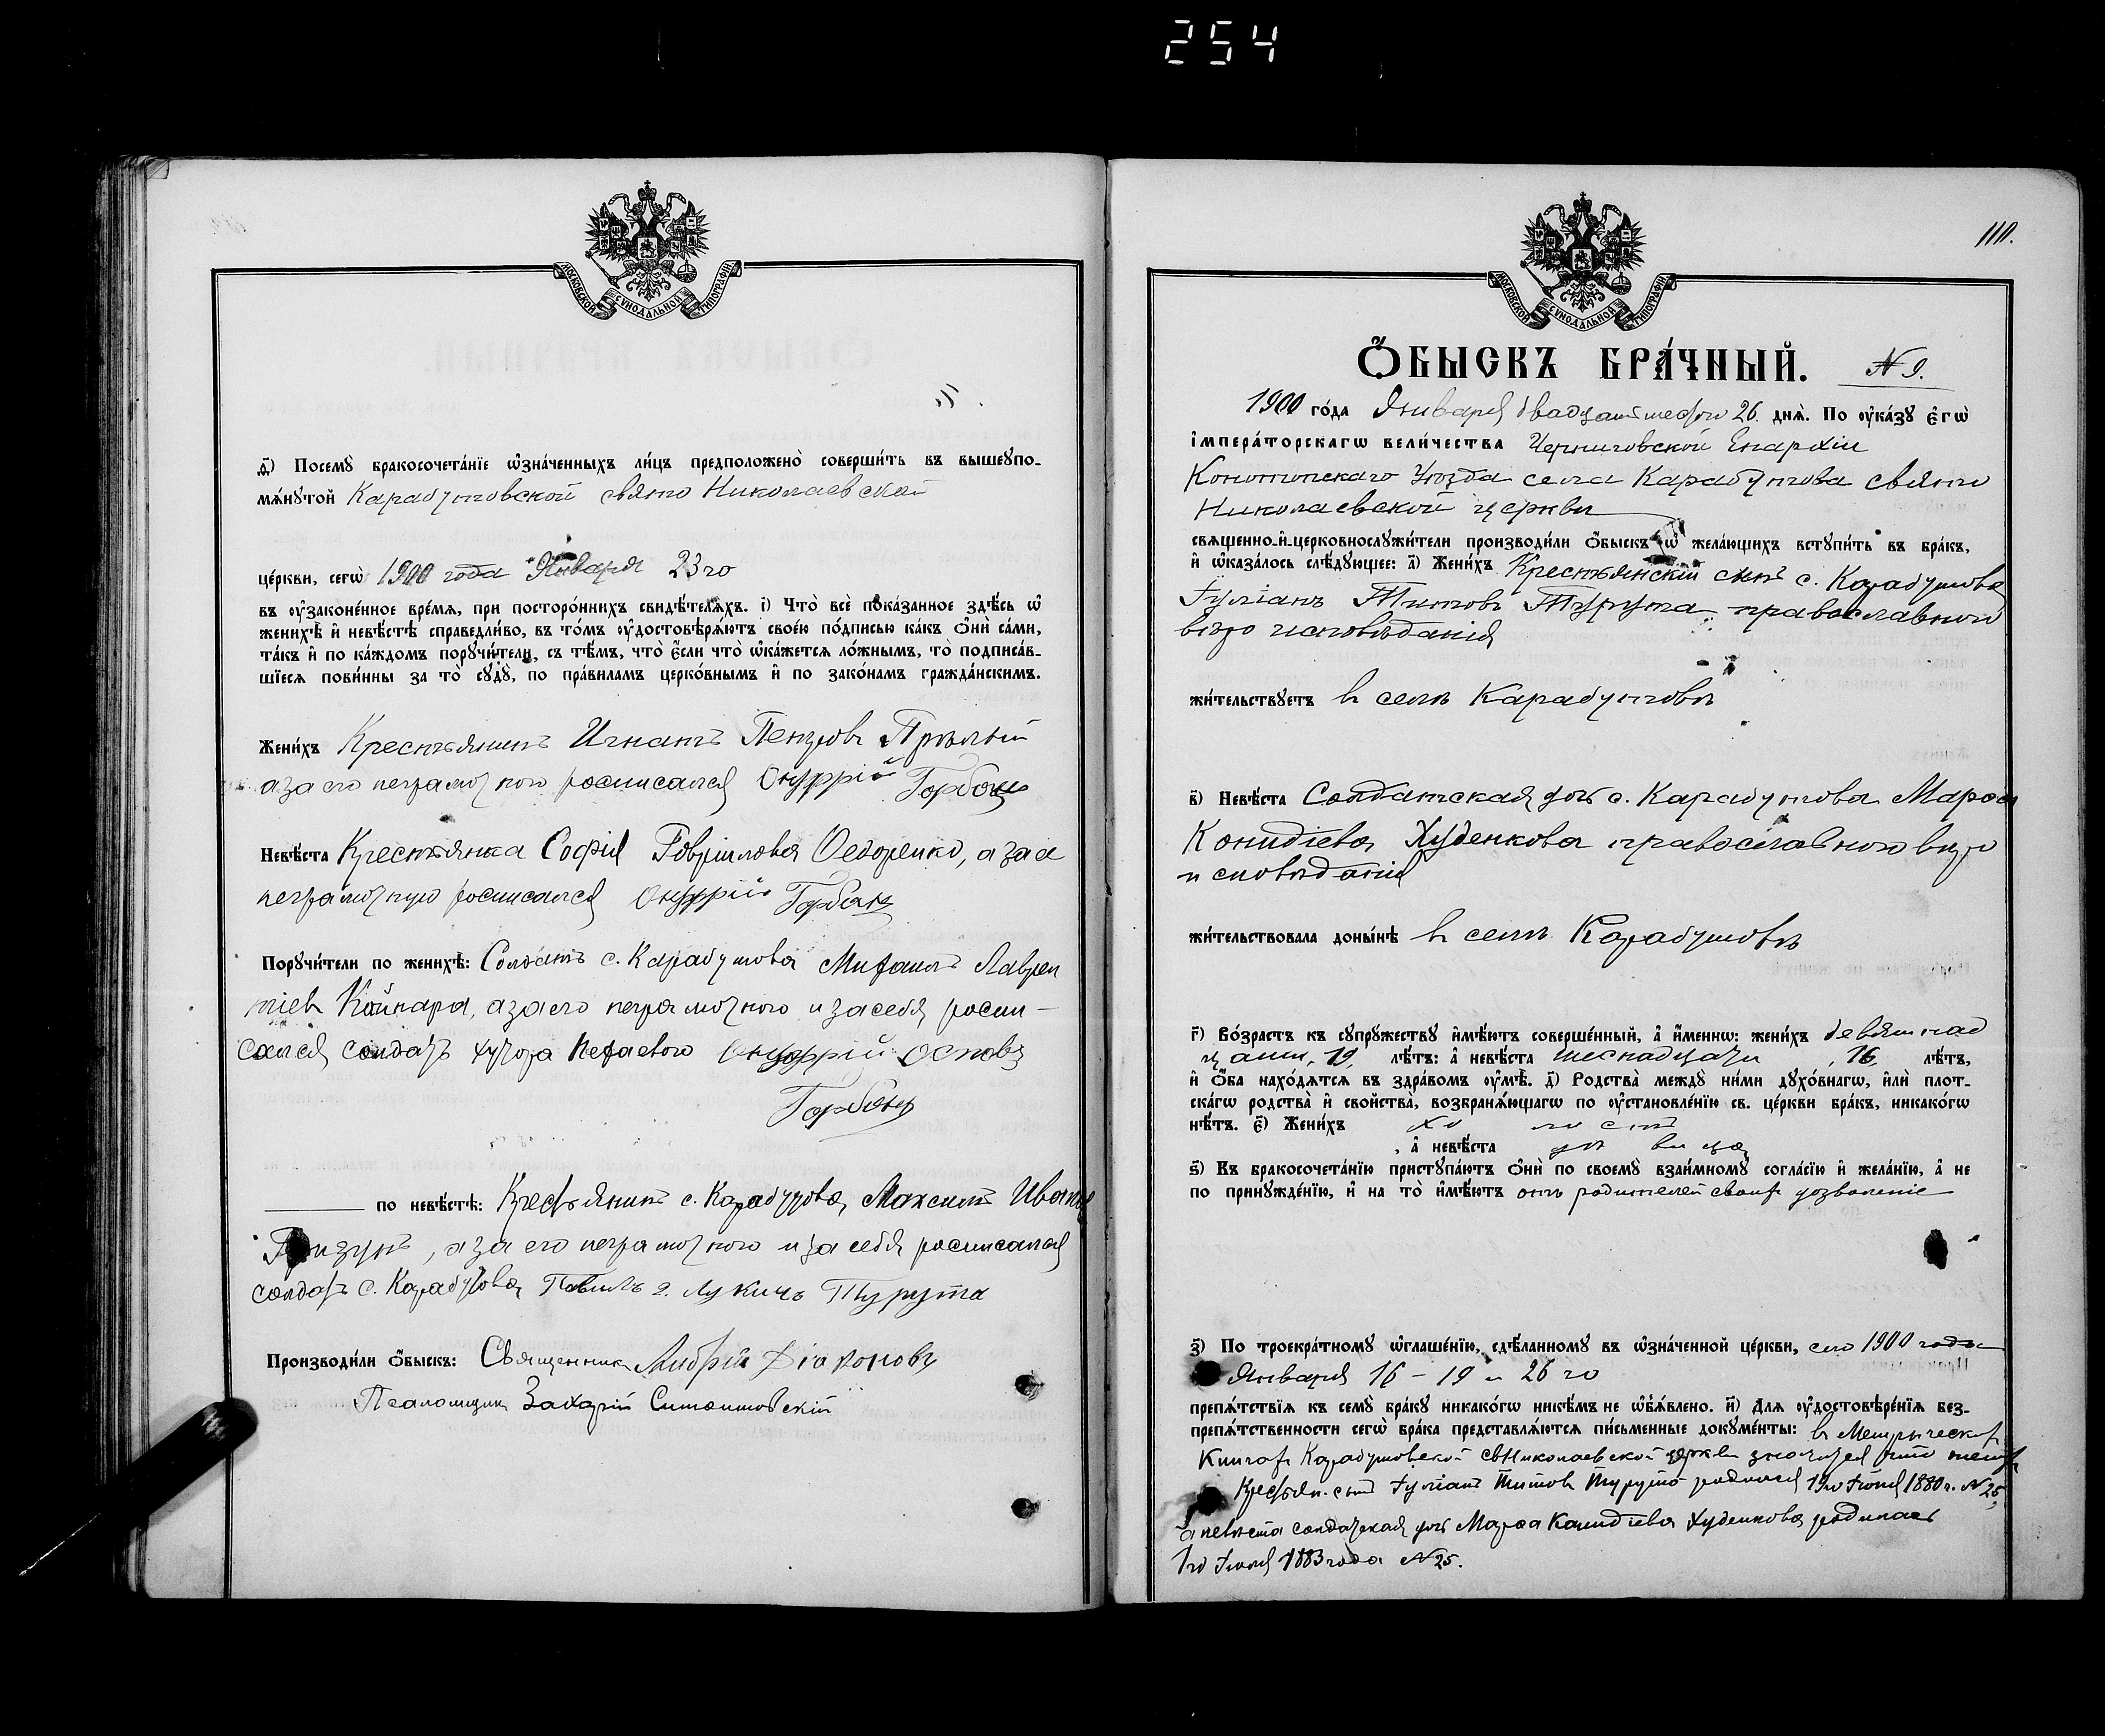 254
МОСКОВСКОЙ СУНОДАЛЬНОЙ ТИПОГРАФІИ
ѳ) Посемꙋ̀ бракосочета́нїе ѡ҆зна́ченныхъ ли́цъ предположено̀ соверши́ть въ вышеꙋпо-
мѧ́нꙋтой Карабутовской свято Николаевской
це́ркви, сегѡ̀ 1900 года Января 23 го
въ ᲂу҆зако́ненное вре́мѧ, при посторо́ннихъ свидѣ́телѧхъ. і) Что̀ всѐ пока́занное здѣ́сь ѡ҆
женихѣ̀ и҆ невѣ́стѣ справедли́во, въ то́мъ ᲂу҆достовѣрѧ́ютъ свое́ю по́дписью ка́къ ѻ҆нѝ са́ми,
та́къ и҆ по ка́ждомъ порꙋчи́тели, съ тѣ́мъ, что̀ є҆́сли что̀ ѡ҆ка́жетсѧ ло́жнымъ, то̀ подписа́в-
шїесѧ пови́нны за то̀ сꙋдꙋ̀, по пра́виламъ церко́внымъ и҆ по зако́намъ гражда́нскимъ.
Жени́хъ Крестьянинъ Игнатъ Петровъ Прилый
а за его неграмотного росписался Онуфрій Горбань
Невѣ́ста Крестьянка Софія Гавриилова Федоренко, а за а
неграмотную росписался Онуфрій Горбань
Порꙋчи́тели по женихѣ̀: Солдатъ с. Карабутова Михаилъ Лаврен
тіевъ Койнара, а за его неграмотного и за себя роспи-
сался солдатъ хутора Нехаевого Онуфрій Осиповъ
Горбань
по невѣ́стѣ: Крестьянинъ с. Карабутова Максимъ Ивановъ
Гризунъ, а за его неграмотного и за себя росписался
солдатъ с. Карабутова Павилъ Лукичъ Турута
Производи́ли ѻ҆́быскъ: Священникъ Андрій Діаконовъ
Псаломщикъ Захарій
МОСКОВСКОЙ СУНОДАЛЬНОЙ ТИПОГРАФІИ
110.
Ѻ҆́БЫСКЪ БРА́ЧНЫЙ. № 9.
1900 го́да Января двадцатшестого 26 днѧ̀. По ᲂу҆ка́зꙋ є҆гѡ̀
і҆мпера́торскагѡ вели́чества Черниговской Епархіи
Конотопскаго Уѣзда села Карабутова свято
Николаевской церкви
свѧщенно-и҆-церковнослꙋжи́тели производи́ли ѻ҆́быскъ ѡ҆ жела́ющихъ встꙋпи́ть въ бра́къ,
и҆ ѡ҆каза́лось слѣ́дꙋющее: а) Жени́хъ Крестьянскій сынъ с. Карабутова
Іуліанъ Титовъ Турута православного
віро исповѣданія
жи́тельствꙋетъ в селѣ Карабутовѣ
в) Невѣ́ста Солдатская дочь с. Карабутова Марѳа
Конидіева Худенкова православного віро
исповѣданія
жи́тельствовала доны́нѣ в селѣ Карабутовѣ
г) Во́зрастъ къ сꙋпрꙋ́жествꙋ и҆мѣ́ютъ соверше́нный, а҆ и҆́меннѡ: жени́хъ девятнад
цати, 19, лѣ́тъ: а҆ невѣ́ста шеснадцати, 16, лѣ́тъ,
и҆ ѻ҆́ба нахо́дѧтсѧ въ здра́вомъ ᲂу҆мѣ̀. д) Родства̀ междꙋ̀ ни́ми дꙋхо́внагѡ, и҆лѝ плот-
ска́гѡ родства̀ и҆ свойства̀, возбранѧ́ющагѡ по ᲂу҆становле́нїю св. це́ркви бра́къ, никако́гѡ
нѣ́тъ. є) Жени́хъ холостъ
, а҆ невѣ́ста девица
ѕ) Въ бракосочета́нїю пристꙋпа́ютъ ѻ҆нѝ по своемꙋ̀ взаи́мномꙋ согла́сїю и҆ жела́нїю, а҆ не
по принꙋжде́нїю, и҆ на то̀ и҆мѣ́ютъ отъ родителей своих дозволеніе
з) По троекра́тномꙋ ѡ҆глаше́нїю, сдѣ́ланномꙋ въ ѡ҆зна́ченной це́ркви, сего 1900 года
Января 16 – 19 и 26 го
препѧ́тствїѧ къ семꙋ̀ бра́кꙋ никако́гѡ никѣ́мъ не ѡ҆б̾ѧ́влено. и) Длѧ ᲂу҆достовѣре́нїѧ без-
препѧ́тственности сегѡ̀ бра́ка представлѧ́ютсѧ пи́сьменные докꙋме́нты: в Метрических
Книгах Карабутовской св Николаевской церкви значится что жених
Крестьян. сынъ Іуліанъ Титовъ Турута родился 19го Іюня 1880 г. № 25,
а невѣста солдатская дочь Марѳа Конидіева Худенкова родилась
1го Іюля 1883 года № 25.